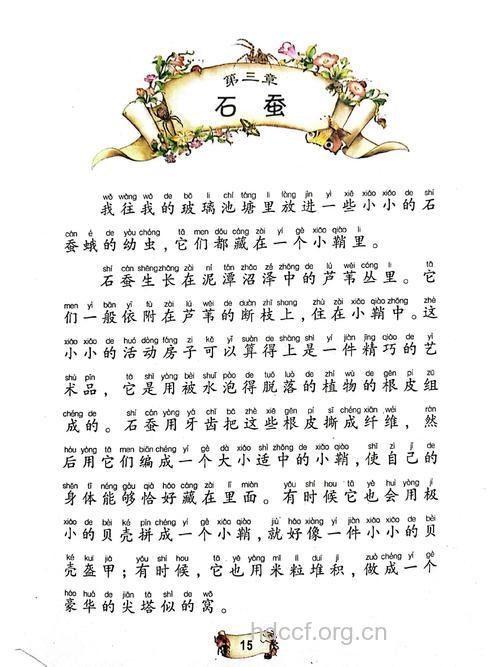 第三章
石蚕
wǒ wǎng wǒ de bō li chí táng lǐ fàng jìn yì xiē xiǎo xiǎo de shí
我往我的玻璃池塘里放进一些小小的石
cán é de yòu chóng tā men dōu cáng zài yí gè xiǎo qiào lǐ
蚕蛾的幼虫，它们都藏在一个小鞘里。
shí cán shēng zhǎng zài ní tán zhǎo zé zhōng de lú wěi cóng lǐ tā
石蚕生长在泥潭沼泽中的芦苇丛里。它
men yì bān yī fù zài lú wěi de duàn zhī shang zhù zài xiǎo qiào zhōng zhè
们一般依附在芦苇的断枝上，住在小鞘中。这
xiǎo xiǎo de huó dòng fáng zi kě yǐ suàn de shàng shì yí jiàn jīng qiǎo de yì
小小的活动房子可以算得上是一件精巧的艺
shù pǐn tā shì yòng bèi shuǐ pào de tuō luò de zhí wù de gēn pí zǔ
术品，它是用被水泡得脱落的植物的根皮组
chéng de shí cán yòng yá chǐ bǎ zhè xiē gēn pí sī chéng xiān wéi rán
成的。石蚕用牙齿把这些根皮撕成纤维，然
hòu yòng tā men biān chéng yí gè dà xiǎo shì zhōng de xiǎo qiào shǐ zì jǐ de
后用它们编成一个大小适中的小鞘，使自己的
shēn tǐ néng gòu qià hǎo cáng zài lǐ miàn yǒu shí hou tā yě huì yòng jí
身体能够恰好藏在里面。有时候它也会用极
xiǎo de bèi ké pīn chéng yí gè xiǎo qiào jiù hǎo xiàng yí jiàn xiǎo xiǎo de bèi
小的贝壳拼成一个小鞘，就好像一件小小的贝
ké kuī jiǎ yǒu shí hou tā yě yòng mǐ lì duī jī zuò chéng yí gè
壳盔甲；有时候，它也用米粒堆积，做成一个
háo huá de jiān tǎ shì de wō
豪华的尖塔似的窝。
15
hdccf.org.cn